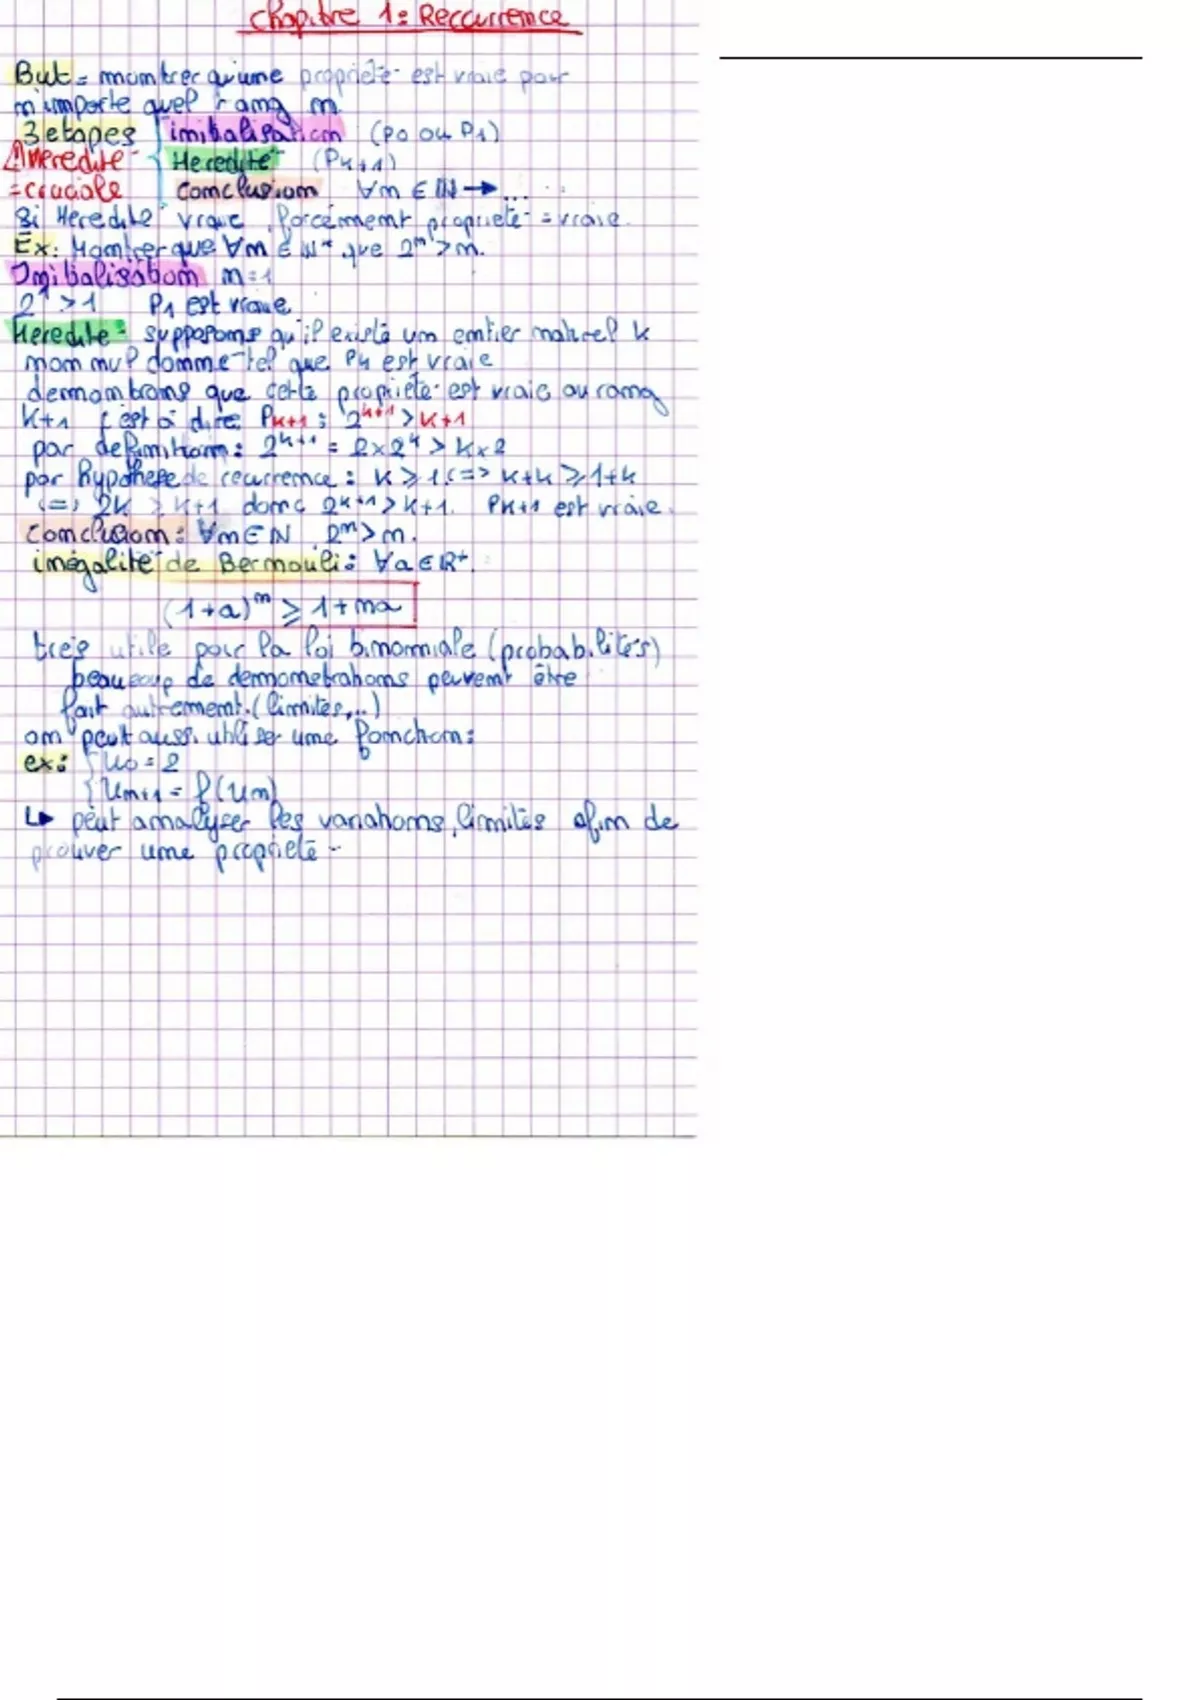 Chapitre 1: Reccurrence
But = montrer qu'une propriété est vraie pour
n'importe quel rang n.
3 etapes initialisation (P0 ou P1)
⚠ Heredité Heredité (Pk+1)
= cruciale conclusion ∀n ∈ ℕ → ...
Si Heredité vraie, forcément propriété = vraie.
Ex: Montrer que ∀n ∈ ℕ* que 2^n > n.
Initialisation n=1
2^1 > 1 P1 est vraie
Heredite: supposons qu'il existe un entier naturel k
non nul donné tel que Pk est vraie
demontrons que cette propriété est vraie au rang
k+1 c'est à dire Pk+1 : 2^k+1 > k+1
par definition: 2^k+1 = 2×2^k > k×2
par hypothese de recurrence : k ⩾ 1 <=> k+k ⩾ 1+k
<=> 2k ⩾ k+1 donc 2^k+1 > k+1. Pk+1 est vraie.
Conclusion: ∀n ∈ ℕ 2^n > n.
inégalité de Bernouli: ∀a ∈ ℝ+.
(1+a)^n ⩾ 1+na
très utile pour la loi binomiale (probabilités)
beaucoup de demonstrations peuvent être
fait autrement. (limites,..)
on peut aussi utiliser une fonction:
ex: { U0 = 2
{ Un+1 = f(Un)
↳ peut analyser les variations, limites afin de
prouver une propriété -